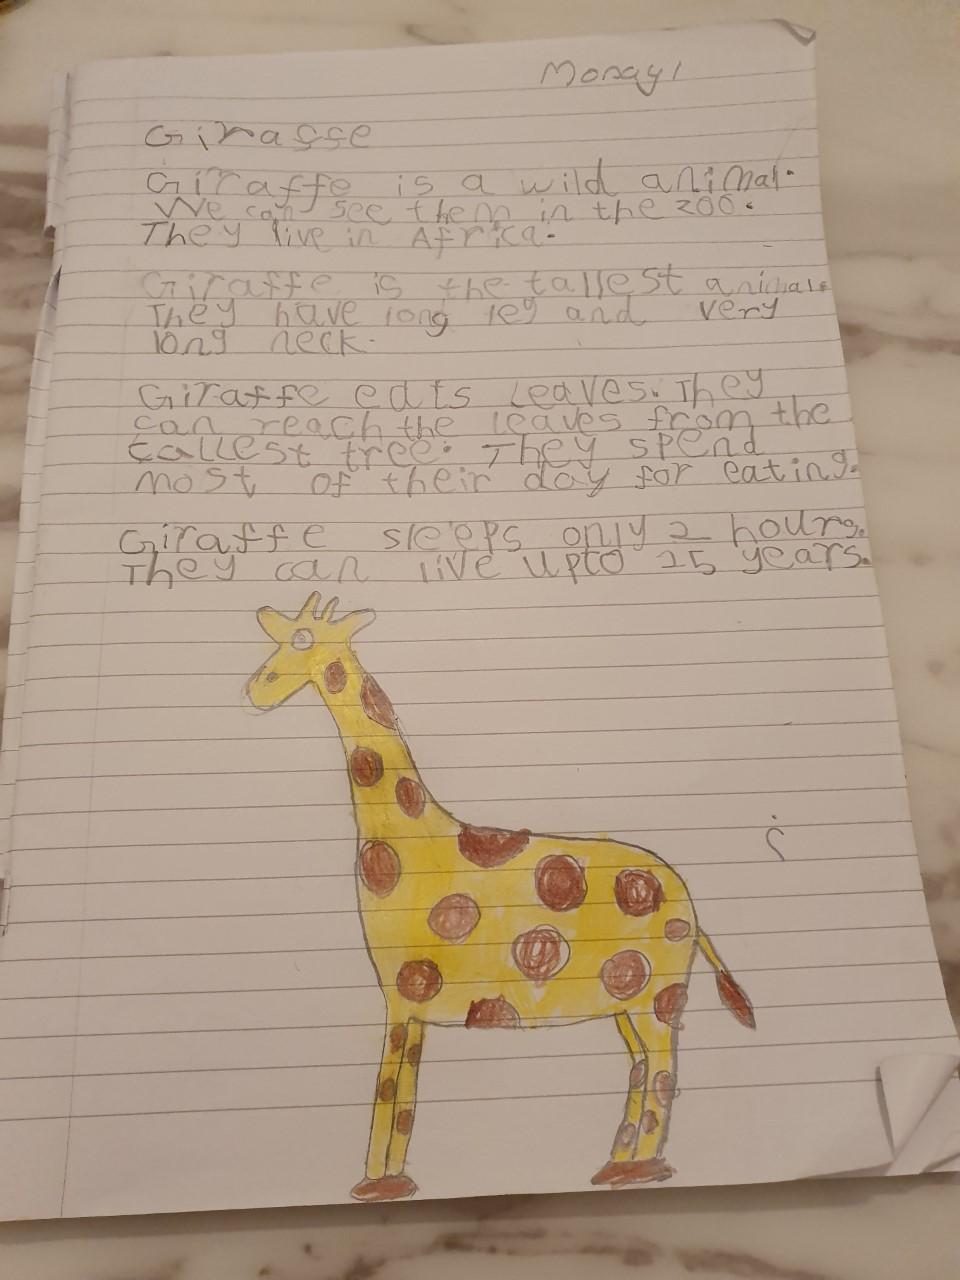 Monay1
Girasse
Giraffe is a wild animal.
We can see them in the zoo.
They live in Africa.
Giraffe is the tallest animal.
They have long leg and very
long neck.
Giraffe eats leaves. They
can reach the leaves from the
tallest tree. They spend
most of their day for eating.
Giraffe sleeps only 2 hours.
They can live upto 25 years.